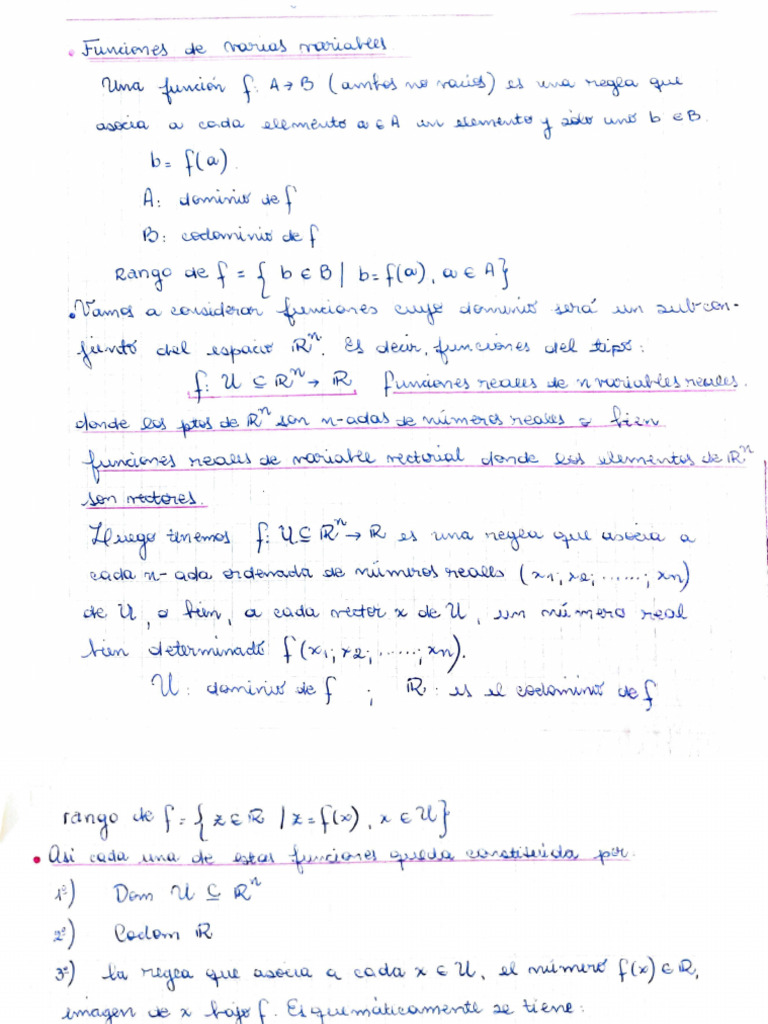 • Funciones de varias variables.
Una función f: A→B (ambos no vacíos) es una regla que
asocia a cada elemento a∈A un elemento y sólo uno b∈B.
b= f(a).
A: dominio de f
B: codominio de f
Rango de f = { b∈B / b=f(a), a∈A}
• Vamos a considerar funciones cuyo dominio será un subcon-
junto del espacio ℝⁿ. Es decir, funciones del tipo:
f: U ⊆ ℝⁿ → ℝ funciones reales de n variables reales.
donde los ptos de ℝⁿ son n-adas de números reales o bien
funciones reales de variable vectorial donde los elementos de ℝⁿ
son vectores.
Luego tenemos f: U⊆ℝⁿ→ℝ es una regla que asocia a
cada n-ada ordenada de números reales (x1; x2; ......; xn)
de U, o bien, a cada vector x de U, un número real
bien determinado f(x1; x2; ......; xn).
U: dominio de f ; ℝ: es el codominio de f
rango de f = { z∈ℝ / z=f(x), x∈U}
• Así cada una de estas funciones queda constituida por:
1º) Dom U ⊆ ℝⁿ
2º) Codom ℝ
3º) la regla que asocia a cada x∈U, el número f(x)∈ℝ,
imagen de x bajo f. Esquemáticamente se tiene: